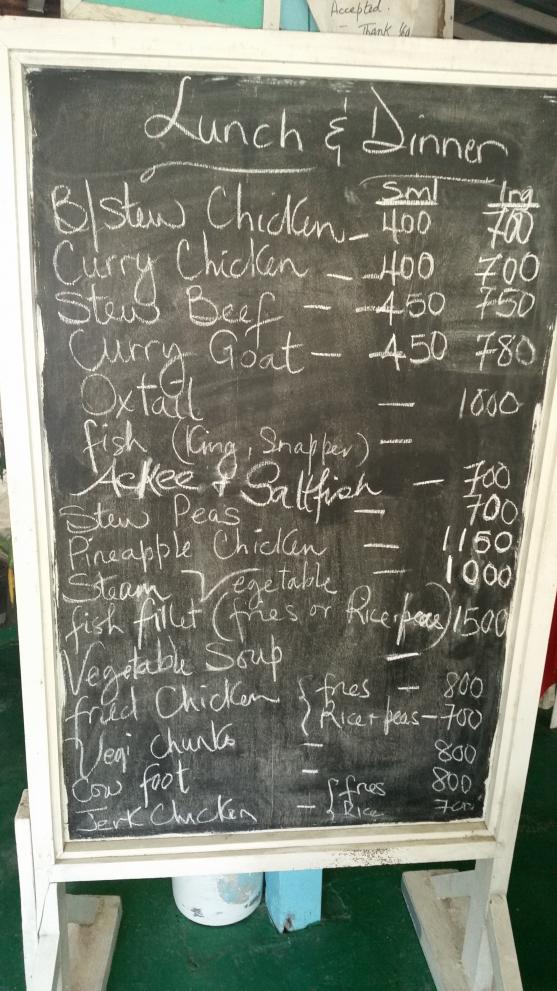 Accepted.
- Thank
Lunch & Dinner
Sml lrg
B/Stew Chicken - 400 700
Curry Chicken - 400 700
Stew Beef - 450 750
Curry Goat - 450 780
Oxtail - 1000
fish (King, Snapper) -
Ackee & Saltfish - 700
Stew Peas - 700
Pineapple Chicken - 1150
Steam Vegetable - 1000
fish fillet (fries or Rice+peas) 1500
Vegetable Soup -
fried Chicken { fries - 800
Rice + peas - 700
Vegi Chunks - 800
Cow foot - 800
Jerk Chicken - { fries
Rice 700